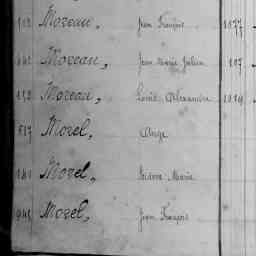 Moreau, Jean François 1077
Moreau, Jean Marie Julien 107
Moreau, Louis Alexandre 1014
837 Morel, Ange
141 Morel, Isidore Marie
941 Morel, Jean François